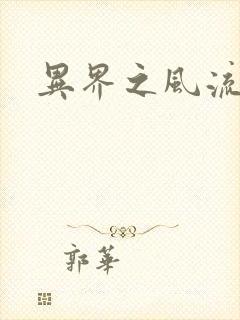 異界之風流
郭華